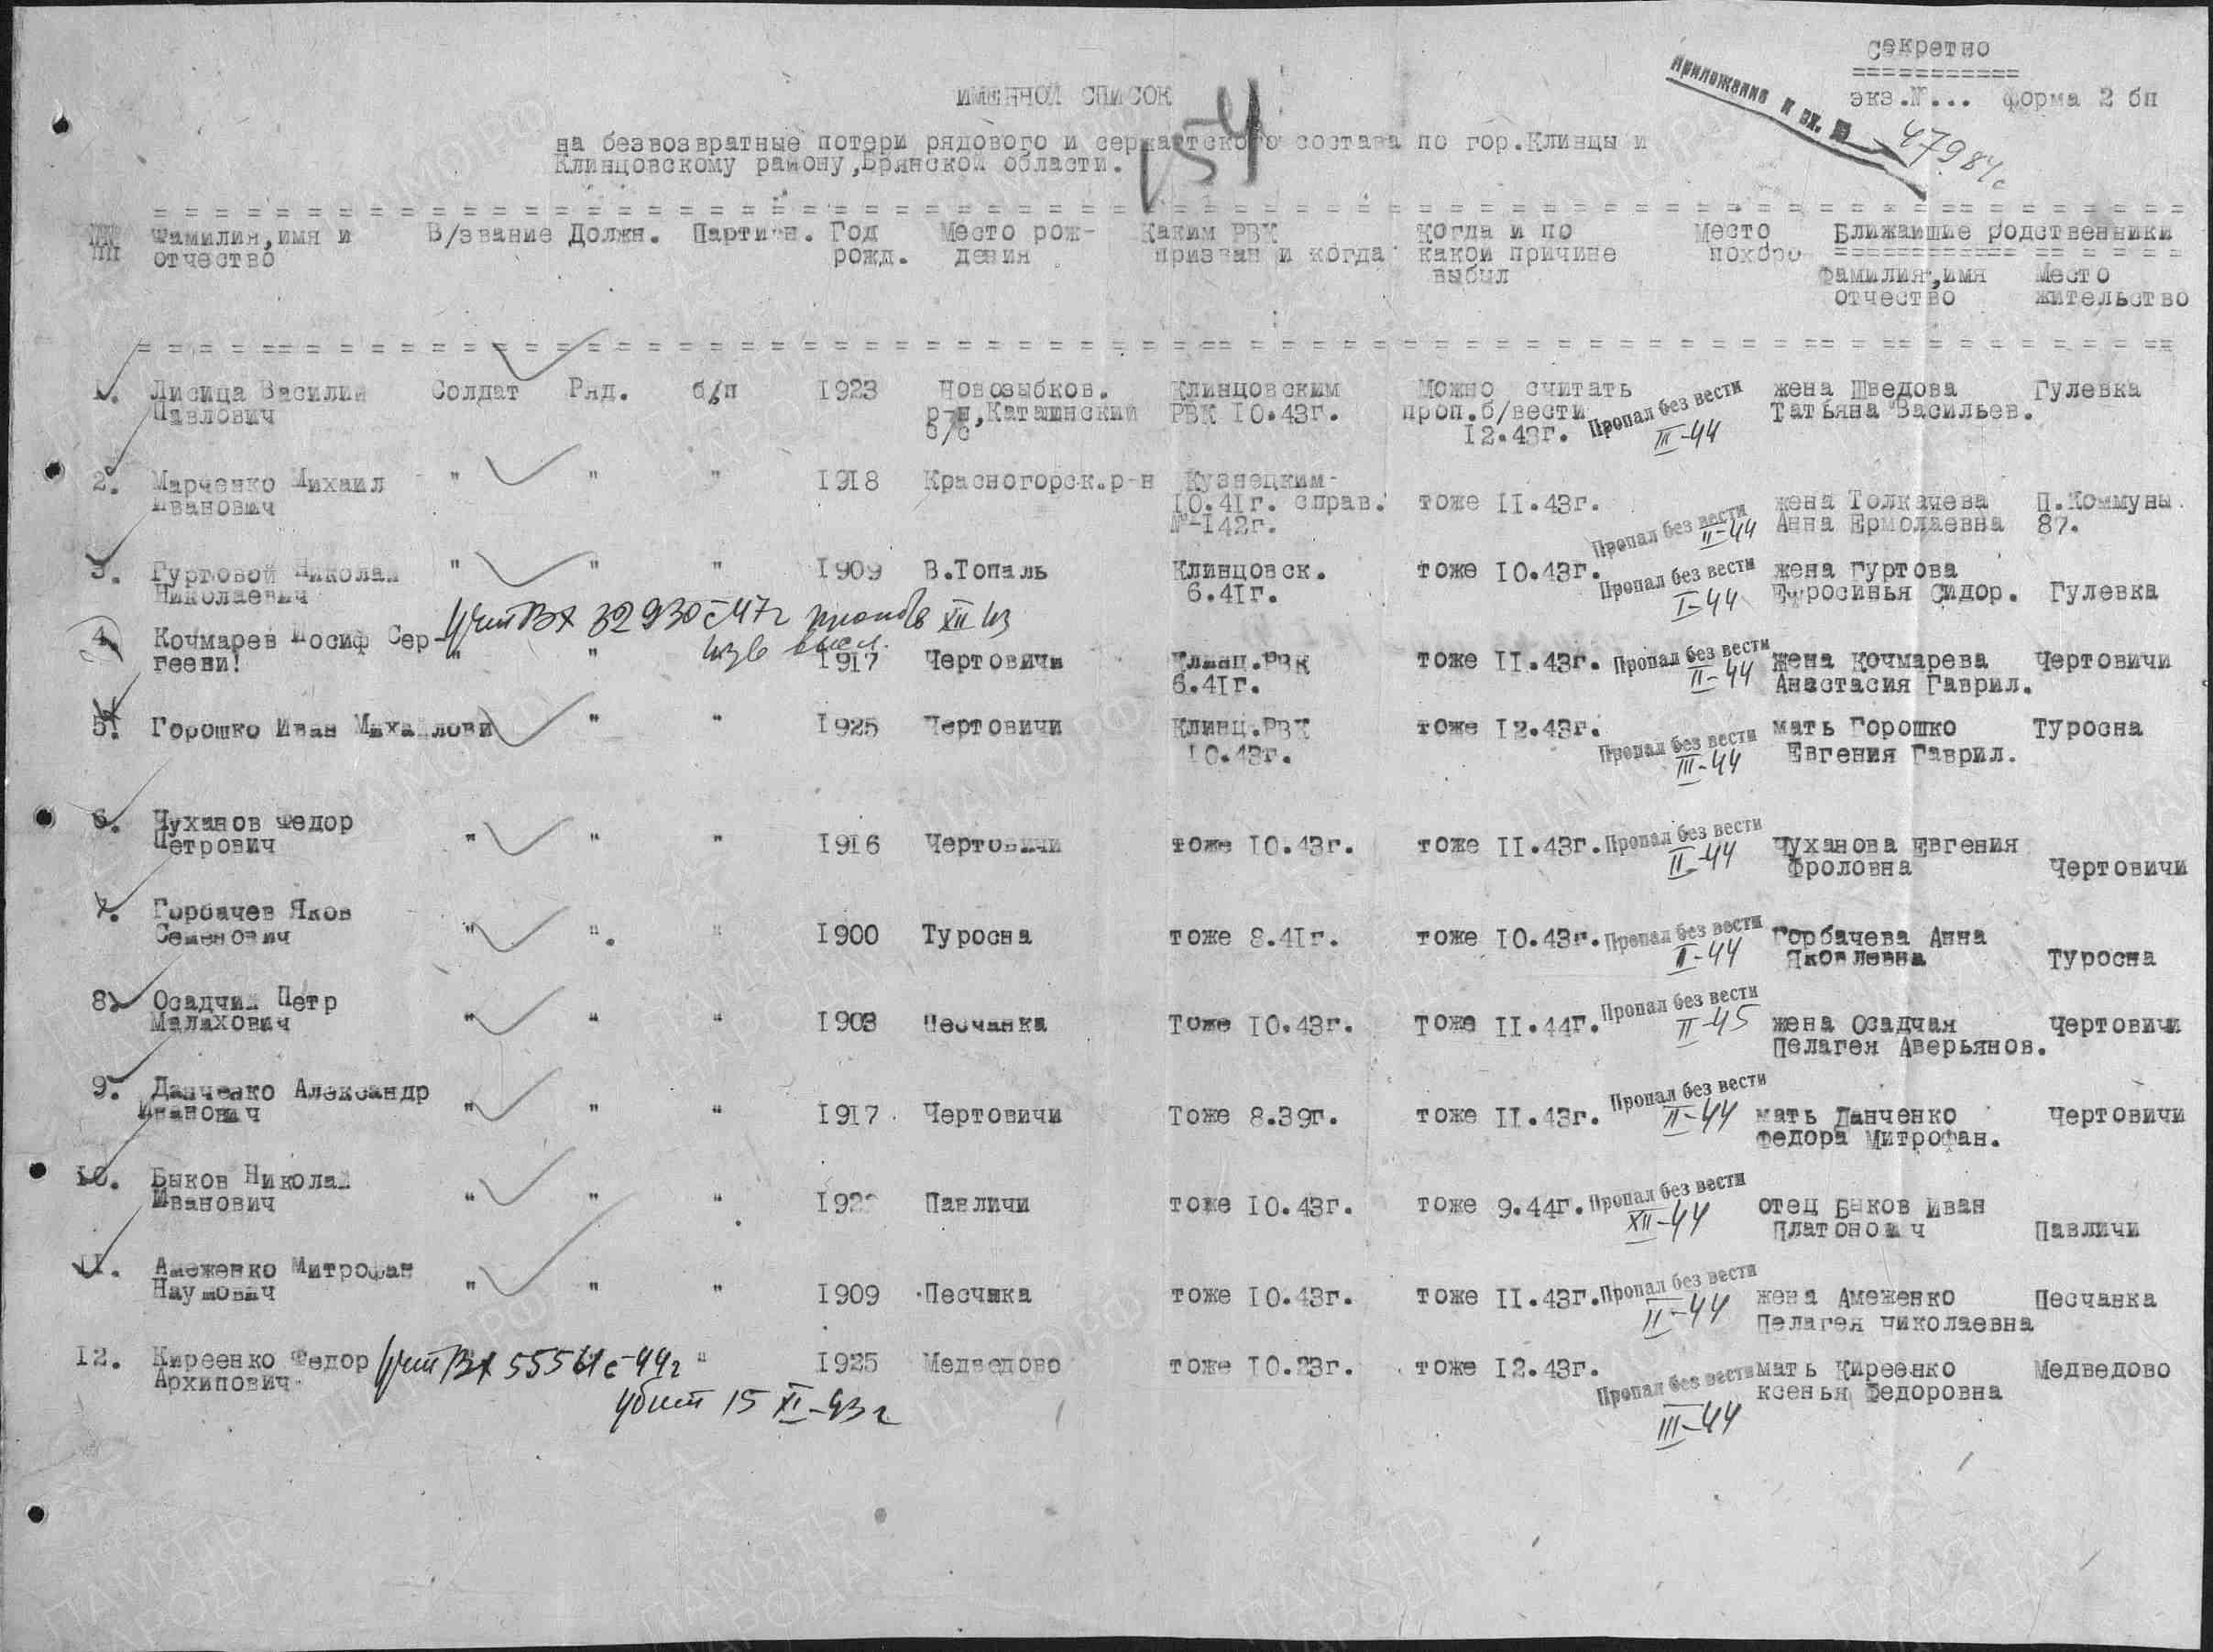 Секретно
Приложение к вх. № 47984с
экз.№... форма 2 бп
ИМЕННОЙ СПИСОК
154
на безвозвратные потери рядового и сержантского состава по гор.Клинцы и
Клинцовскому району,Брянской области.
Фамилия,имя и В/звание Должн. Партийн. Год Место рож- Каким РВК Когда и по Место Ближайшие родственники
отчество рожд. дения призван и когда какой причине похоро
выбыл Фамилия,имя Место
отчество жительство
1. Лисица Василий Солдат Ряд. б/п 1923 Новозыбков. Клинцовским Можно считать жена Шведова Гулевка
Павлович р-н,Каташинский РВК 10.43г. проп.б/вести Пропал без вести Татьяна Васильев.
с/с 12.43г. III-44
2. Марченко Михаил " " " 1918 Красногорск.р-н Кузнецким-
Иванович 10.41г. справ. тоже 11.43г. жена Толкачева П.Коммуны
№-142г. Пропал без вести II-44 Анна Ермолаевна 87.
3. Гуртовой Николай " " " 1909 В.Топаль Клинцовск. тоже 10.43г. жена Гуртова
Николаевич 6.41г. Пропал без вести I-44 Ефросинья Сидор. Гулевка
учтВх 32930с47г XII 43
4. Кочмарев Иосиф Сер-
гееви! " " 1917 Чертовичи Клинц.РВК тоже 11.43г. Пропал без вести жена Кочмарева Чертовичи
6.41г. II-44 Анастасия Гаврил.
5. Горошко Иван Михайлови " " 1925 Чертовичи Клинц.РВК тоже 12.43г. мать Горошко Туросна
10.43г. Пропал без вести III-44 Евгения Гаврил.
6. Чуханов Федор
Петрович " " " 1916 Чертовичи тоже 10.43г. тоже 11.43г. Пропал без вести Чуханова Евгения
II-44 Фроловна Чертовичи
7. Горбачев Яков
Семенович " ". " 1900 Туросна тоже 8.41г. тоже 10.43г. Пропал без вести Горбачева Анна
II-44 Яковлевна Туросна
8. Осадчий Петр
Малахович " " " 1903 Песчанка Тоже 10.43г. Тоже 11.44г. Пропал без вести жена Осадчая Чертовичи
II-45 Пелагея Аверьянов.
9. Данченко Александр
Иванович " " " 1917 Чертовичи Тоже 8.39г. тоже 11.43г. Пропал без вести мать Данченко Чертовичи
II-44 Федора Митрофан.
10. Быков Николай
Иванович " " " Павличи тоже 10.43г. тоже 9.44г. Пропал без вести отец Быков Иван
XII-44 Платонович Павличи
11. Амеженко Митрофан
Наумович " " " 1909 Песчнка тоже 10.43г. тоже 11.43г. Пропал без вести жена Амеженко Песчанка
II-44 Пелагея Николаевна
12. Киреенко Федор учтВх 55561с44г " 1925 Медведово тоже 10.23г. тоже 12.43г. мать Киреенко Медведово
Архипович Пропал без вести ксенья Федоровна
убит 15 XI-43г III-44